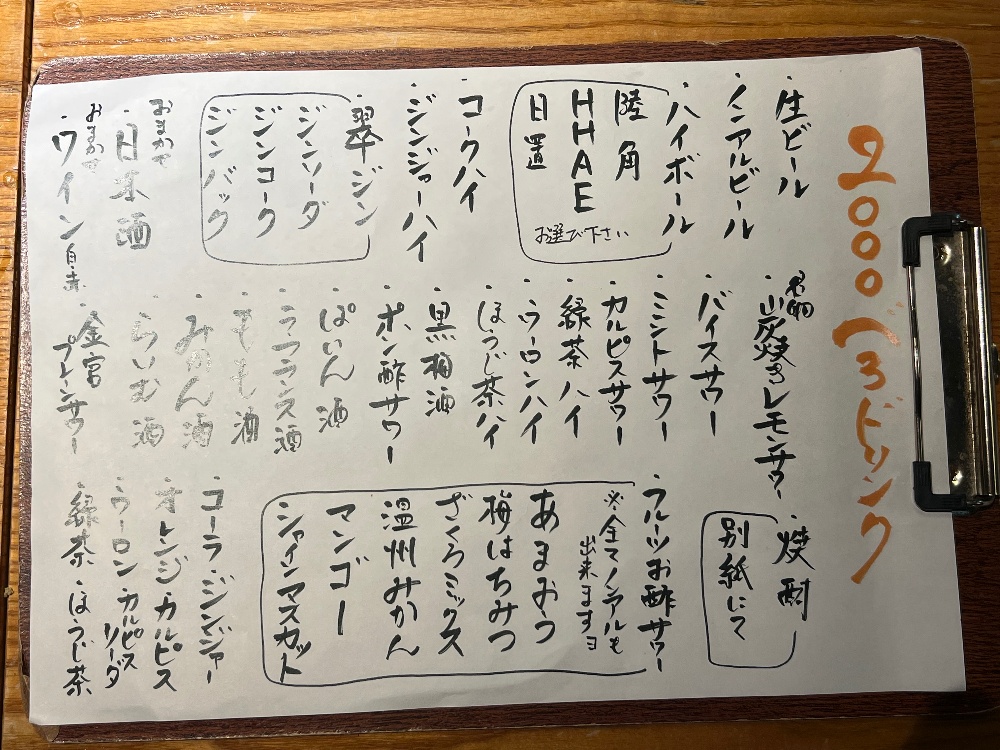 2000べろドリンク
・生ビール
・ノンアルビール
・ハイボール
陸
角
HHAE
日置
お選び下さい
・コークハイ
・ジンジャーハイ
・翠ジン
ジンソーダ
ジンコーク
ジンバック
おまかせ
・日本酒
おまかせ
・ワイン 白・赤
名物
・山炭焼きレモンサワー
・バイスサワー
・ミントサワー
・カルピスサワー
・緑茶ハイ
・ウーロンハイ
・ほうじ茶ハイ
・黒梅酒
・ポン酢サワー
・ぱいん酒
・ラフランス酒
・もも酒
・みかん酒
・らいむ酒
・金宮
プレーンサワー
・焼酎
別紙にて
・フルーツお酢サワー
※全てノンアルも
出来ますヨ
あまおう
梅はちみつ
ざくろミックス
温州みかん
マンゴー
シャインマスカット
・コーラ・ジンジャー
・オレンジ・カルピス
・ウーロン・カルピスソーダ
・緑茶・ほうじ茶